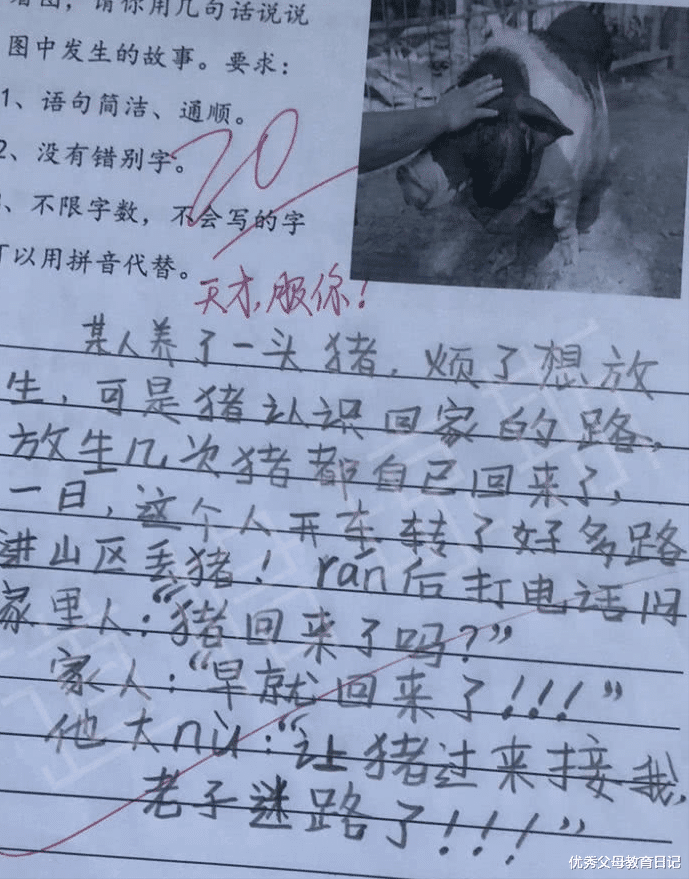 看图，请你用几句话说说
图中发生的故事。要求：
1、语句简洁、通顺。
2、没有错别字。
3、不限字数，不会写的字
可以用拼音代替。
20
天才，服你！
某人养了一头猪，烦了想放
生，可是猪认识回家的路，
放生几次猪都自己回来了，
一日，这个人开车转了好多路
进山区丢猪！rán后打电话问
家里人：“猪回来了吗？”
家人：“早就回来了！！！”
他大nù：“让猪过来接我，
老子迷路了！！！”
优秀父母教育日记